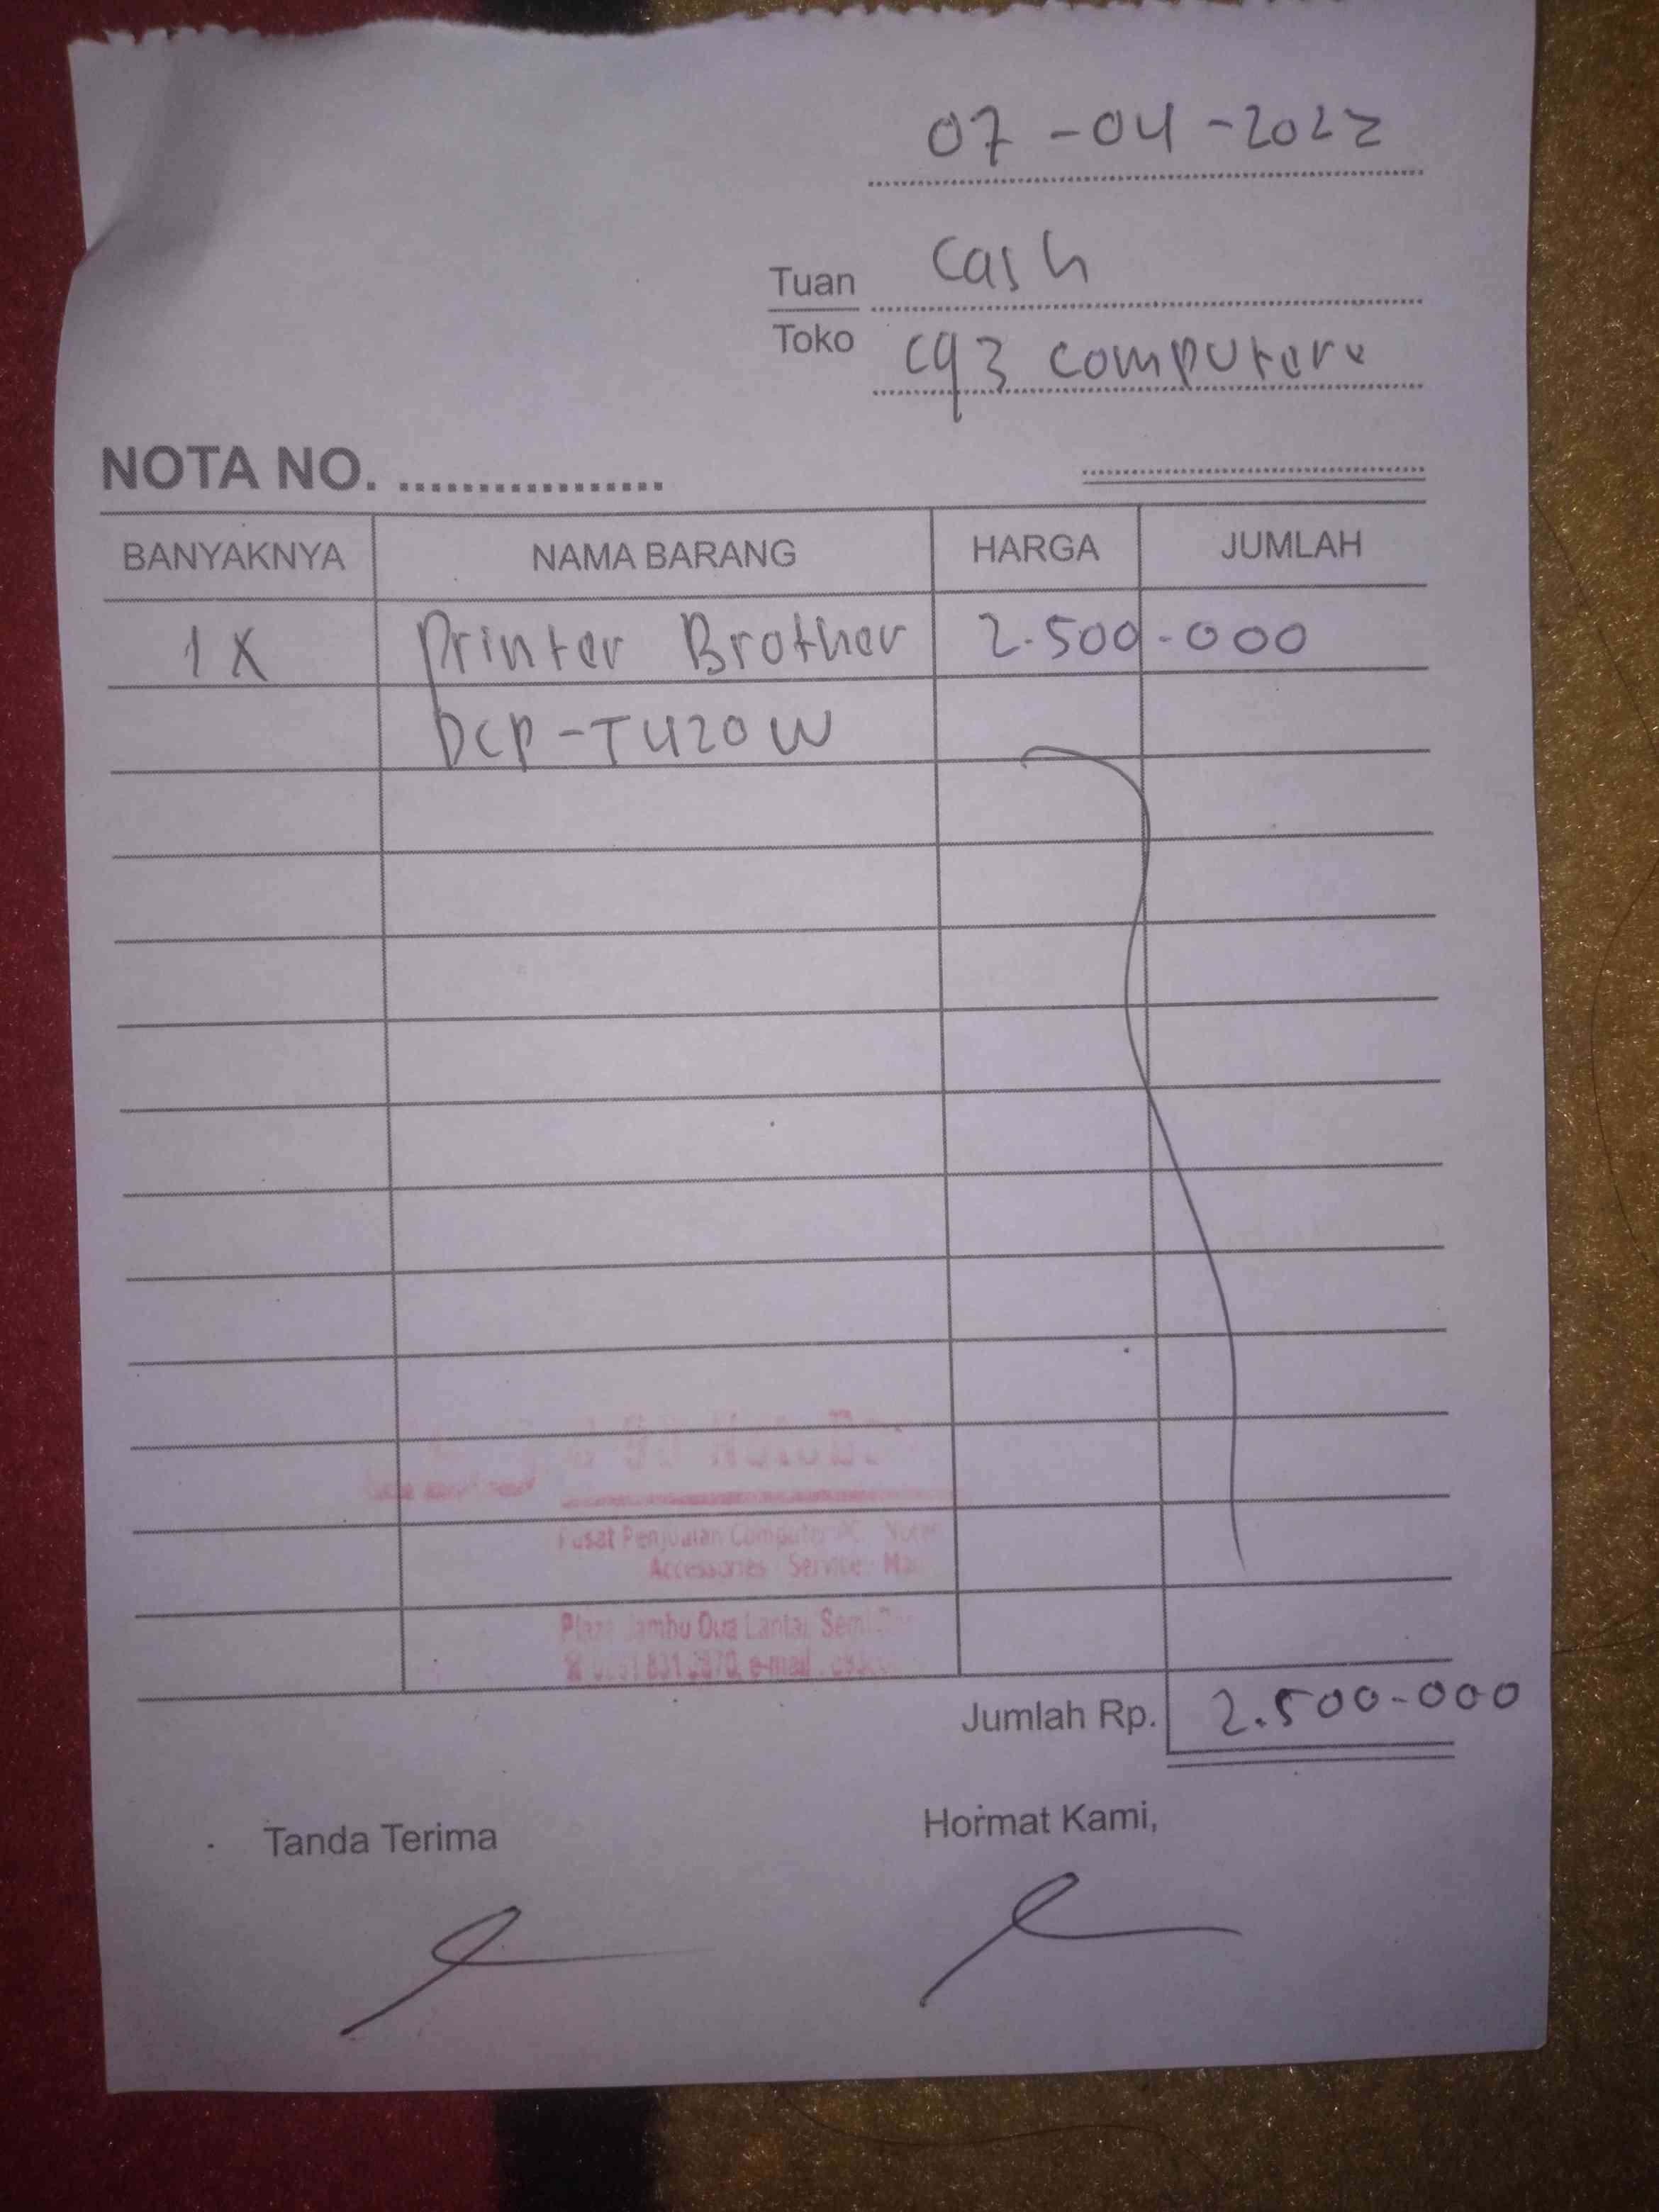 07-04-2022
Tuan Cash
Toko computer
NOTA NO. ..................
BANYAKNYA NAMA BARANG HARGA JUMLAH
1X Printer Brother 2.500.000
DCP-T420W
Pusat Penjualan Computer
Accessories Service
Plaza Jambu Dua Lantai Semi
e-mail
Jumlah Rp. 2.500.000
Tanda Terima Hormat Kami,